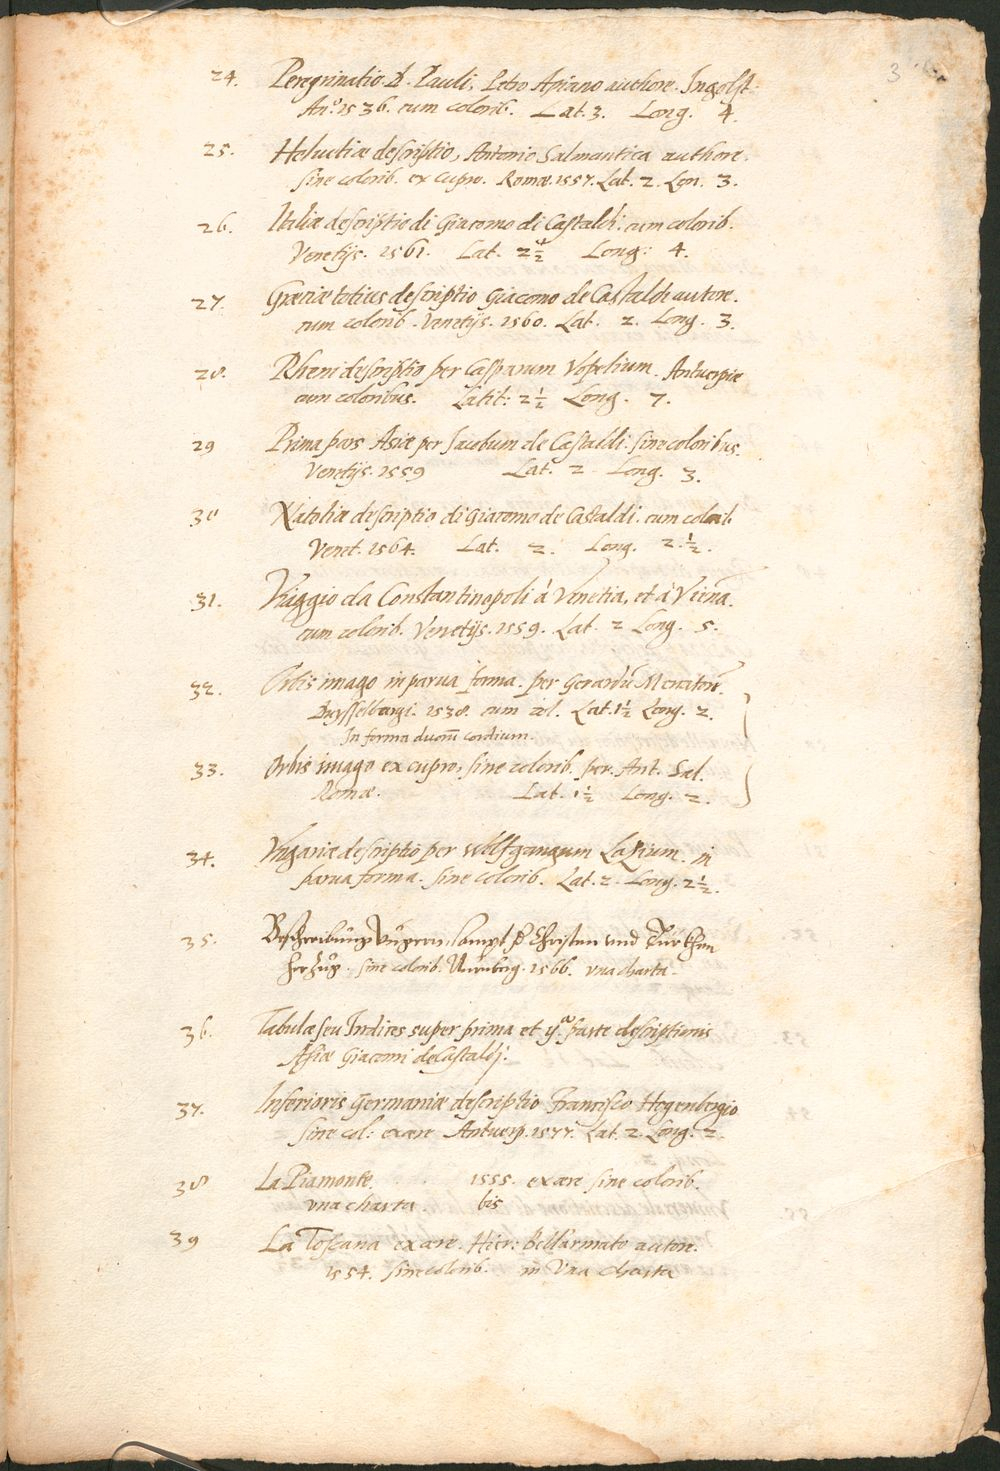 3
24. Peregrinatio D. Pauli, Petro Apiano authore. Ingolst:
An.º 1536. cum colorib. Lat. 3. Long. 4.
25. Helvetiæ descriptio, Antonio Salmantica authore.
sine colorib. ex cupro. Romæ. 1557. Lat. 2. Lon. 3.
26. Italiæ descriptio di Giacomo di Castaldi. cum colorib.
Venetijs. 1561. Lat. 2 1/2 Long: 4.
27. Græciæ totius descriptio Giacomo de Castaldi autore.
cum colorib. Venetijs. 1560. Lat. 2. Long. 3.
28. Rheni descriptio per Casparum Vopelium. Antverpiæ
cum coloribus. Latit: 2 1/2 Long. 7.
29 Prima pars Asiæ per Jacobum de Castaldi. sine coloribus.
Venetijs. 1559 Lat. 2 Long. 3.
30 Natoliæ descriptio di Giacomo de Castaldi. cum colorib.
Venet. 1564. Lat. 2. Long. 2. 1/2.
31. Viaggio da Constantinopoli à Venetia, et à Vienã.
cum colorib. Venetijs. 1559. Lat. 2 Long. 5.
32. Orbis imago in parva forma. per Gerardũ Mercatorẽ.
Duysselburgi. 1538. cum col. Lat. 1 1/2 Long. 2.
In forma duorũ cordium.
33. Orbis imago ex cupro, sine colorib. per. Ant. Sal.
Romæ. Lat. 1 1/2 Long. 2.
34. Vngariæ descriptio per Wolfgangum Lazium. in
parva forma. sine colorib. Lat. 2. Long. 2 1/2.
35. Beschreibung Vngern, sampt der Christen und Türkhen
herzüg. sine colorib. Nürnberg. 1566. vna charta.
36. Tabulæ seu Indices super prima et ija. parte descriptionis
Asiæ Giacomi de Castaldj.
37. Inferioris Germaniæ descriptio Francisco Hogenbergio
sine col: ex ære Antuerp. 1577. Lat. 2. Long. 2.
38 La Piamonte. 1555. ex ære sine colorib.
vna charta. bis
39 La Toscana ex ære. Hier: Bellarmato autore.
1554. sine colorib. in Vna charta